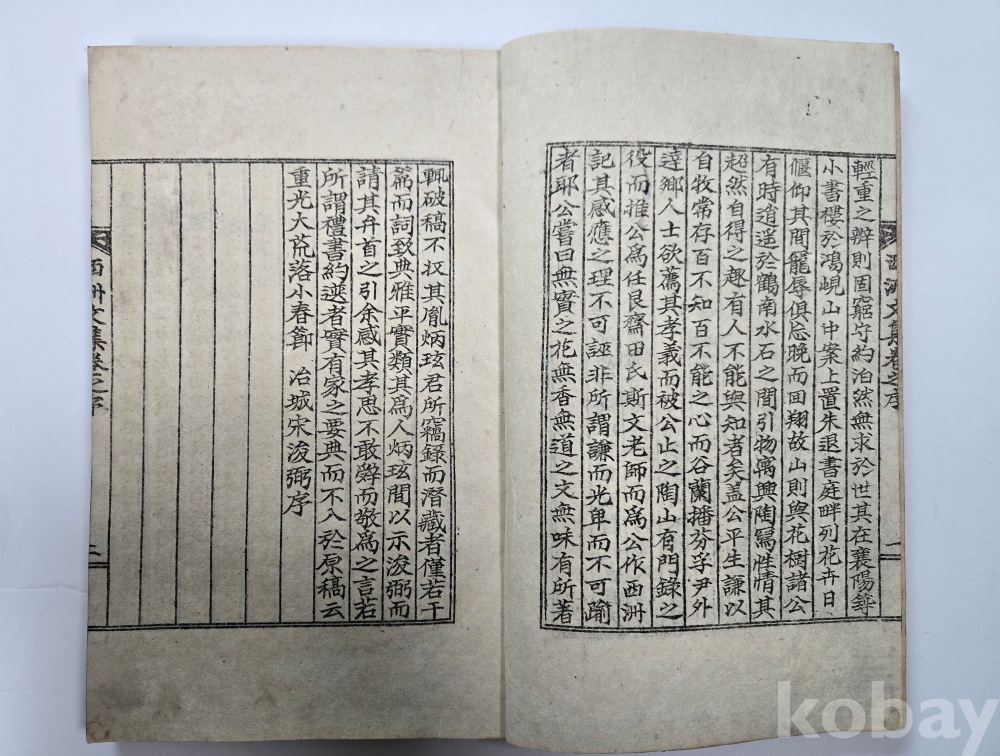 輕重之辨則固窮守約泊然無求於世其在襄陽鋳
小書樓於鴻峴山中案上置朱退書庭畔列花卉日
偃仰其間寵辱俱忘晩而回翔故山則與花樹諸公
有時逍遥於鶴南水石之間引物寓興陶寫性情其
超然自得之趣有人不能與知者矣盖公平生謙以
自牧常存百不知百不能之心而谷蘭播芬孚尹外
達鄉人士欲薦其孝義而被公止之陶山有門錄之
役而推公爲任艮齋田氏斯文老師而爲公作西洲
記其感應之理不可誣非所謂謙而光卑而不可踰
者耶公嘗曰無實之花無香無道之文無味有所著
西洲文集卷之序
一
輒破稿不収其胤炳玹君所竊錄而潛藏者僅若干
篇而詞致典雅平實類其爲人炳玹間以示浚弼而
請其弁首之引余感其孝思不敢辭而敬爲之言若
所謂禮書約選者實有家之要典而不入於原稿云
重光大荒落小春節 冶城宋浚弼序
西洲文集卷之序
二
kobay